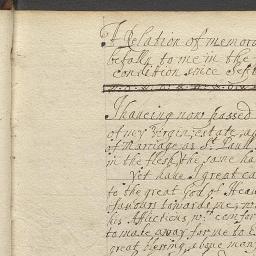 A Relation of memora
befalls to me in the
condition since Sefte
I haveing now passed
of my Virgin; estate, a
of Marriage as St Paull
in the flesh; the same ha
Yet have I great ca
to the great God of Heav
favours towards me,
his Afflictions, wch comfor
to made away for me to E
great blessing, above many